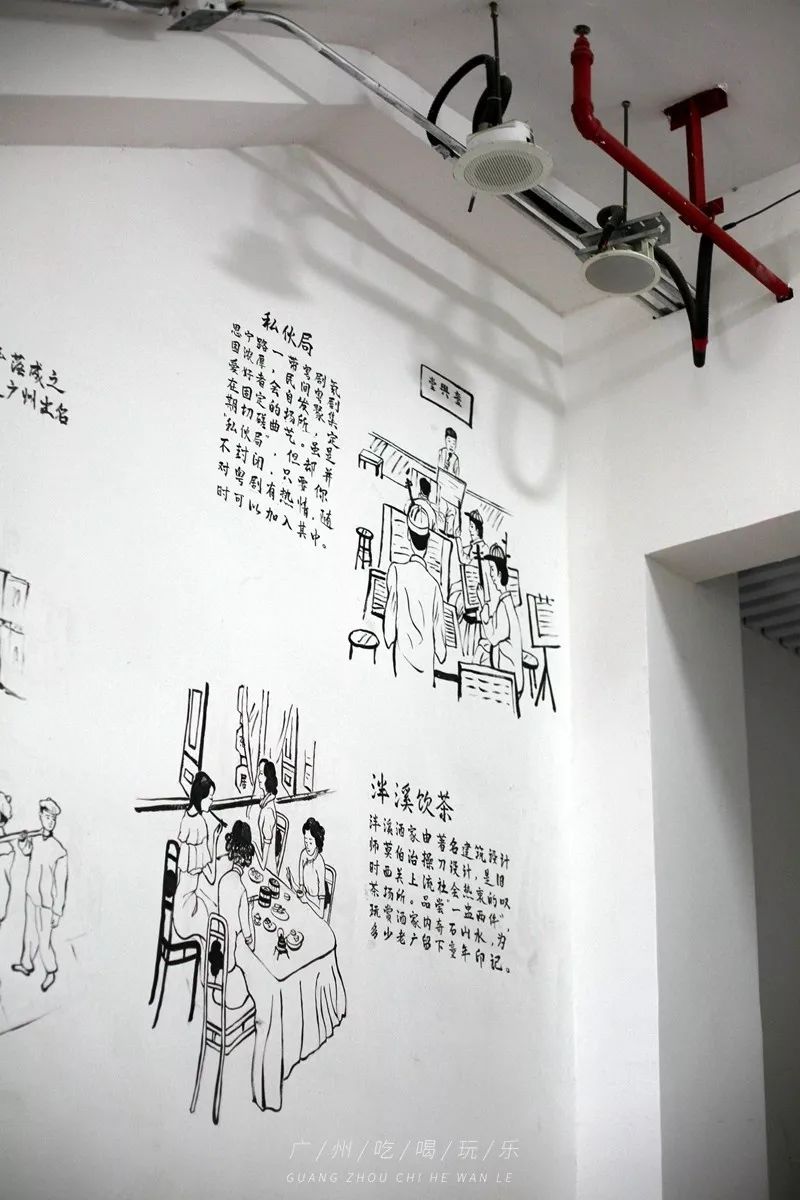 落成之
广州出名
私伙局
恩宁路一带粤剧氛
围浓厚，民间粤剧
爱好者会自发聚集
在固定的场所，定
期切磋曲艺。虽是
“私伙局”，但却并
不封闭，只要你
对粤剧有热情，随
时可以加入其中。
堂興
居
泮溪饮茶
泮溪酒家由著名建筑设计
师莫伯治操刀设计，是旧
时西关上流社会热衷的叹
茶场所。品尝“一盅两件”，
玩赏酒家内奇石山水，为
多少老广留下童年印记。
广/州/吃/喝/玩/乐
GUANG ZHOU CHI HE WAN LE